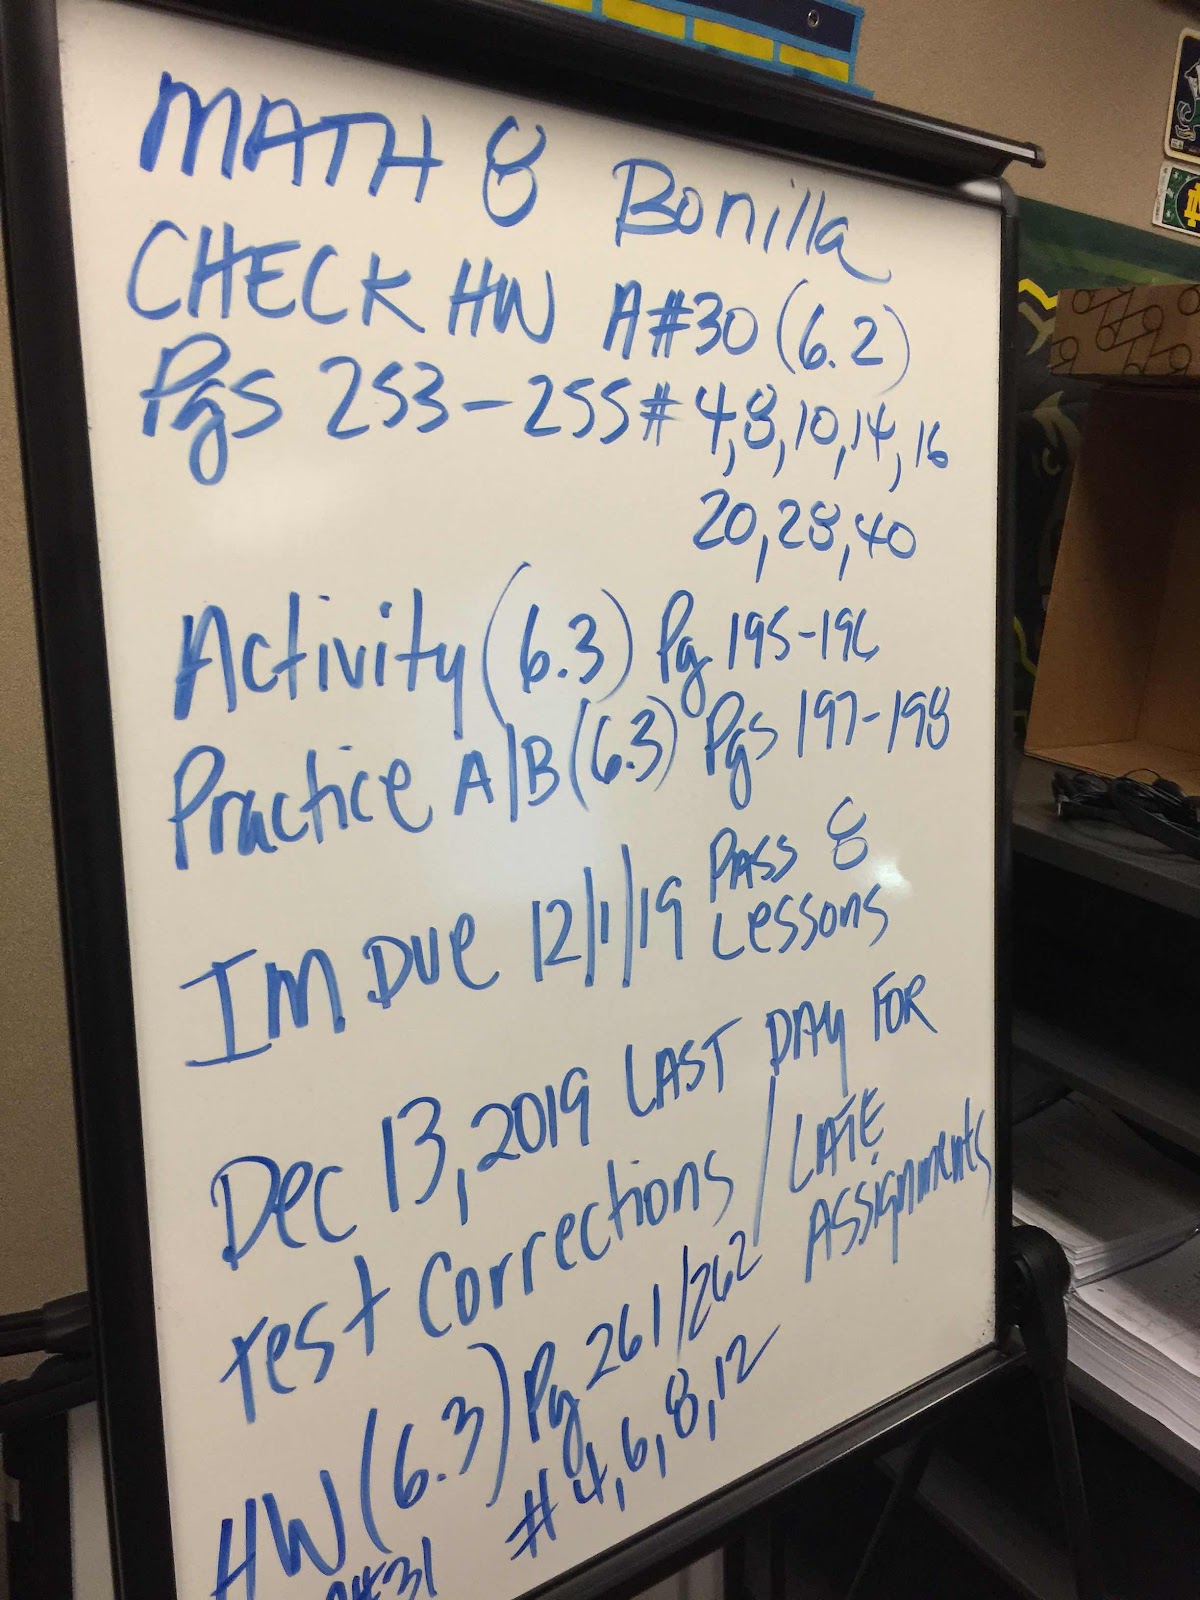 MATH 8 Bonilla
CHECK HW A#30 (6.2)
Pgs 253-255 # 4,8,10,14,16
20,28,40
Activity (6.3) Pg 195-196
Practice A/B (6.3) Pgs 197-198
Im Due 12/1/19 PASS 8
Lessons
Dec 13, 2019 LAST DAY FOR
test Corrections / LATE
Assignments
HW (6.3) Pg 261/262
A#31 # 4,6,8,12